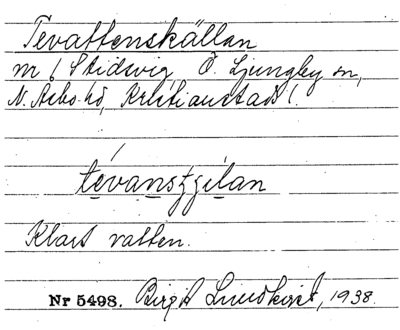 Tevattenskällan
m / Stidsvig Ö. Ljungby sn,
N. Åsbo hd, Kristianstads l.
tévanstʃilan
Klart vatten.
Nr 5498. Birgit Lundkvist, 1938.